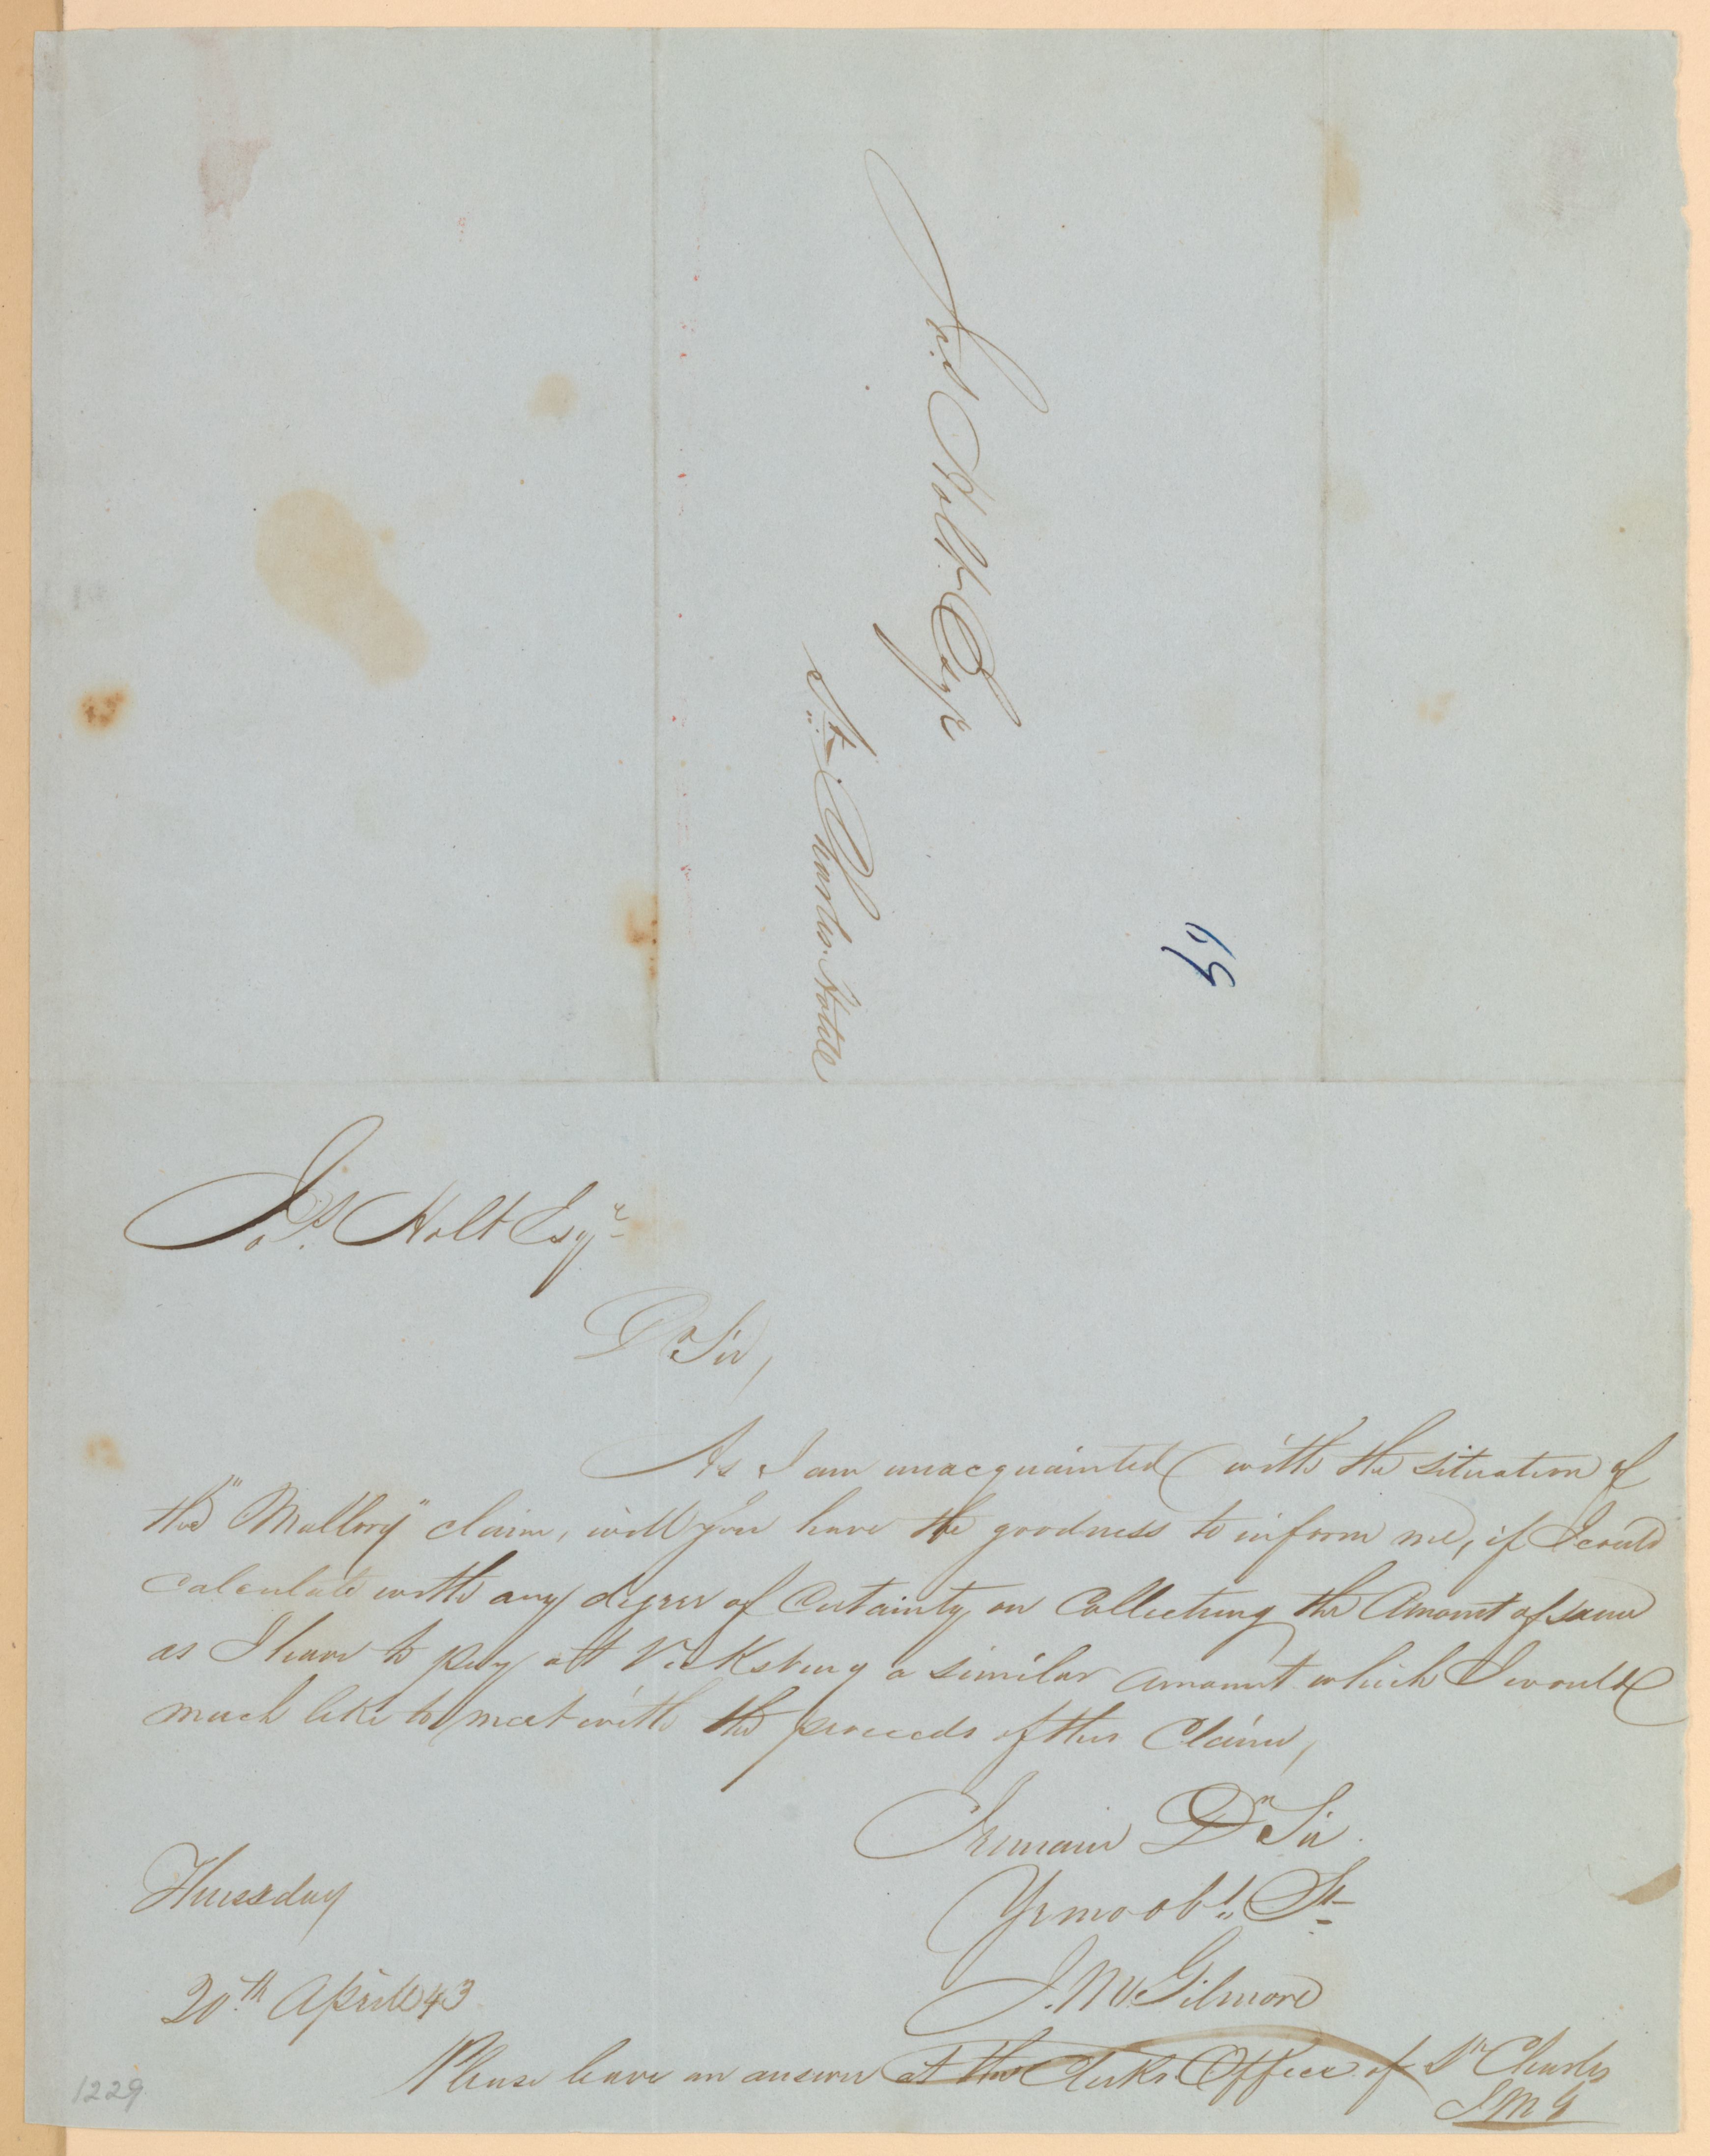 Jos Holt Esqr
St Charles Hotell
59
Jos. Holt Esqr
Dr Sir,
As I am unacquainted with the situation of
the "Mallory" claim, will you have the goodness to inform me, if I could
calculate with any degree of Certainty on Collecting the Amount of same
as I have to pay at Vicksburg a similar amount which I would
much like to meet with the proceeds of this Claim,
I remain Dr Sir.
Yr mo obt St
J. M. Gilmore
Thursday
20th Aprill 43
Please leave an answer at the Clerks Office of St Charles
J M G
1229